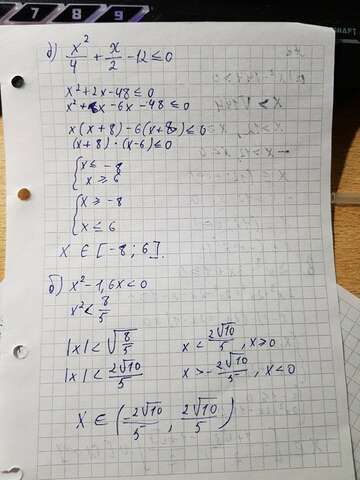 7 8 9
д) x²/4 + x/2 - 12 ≤ 0
x² + 2x - 48 ≤ 0
x² + 8x - 6x - 48 ≤ 0
x(x + 8) - 6(x + 8) ≤ 0
(x + 8) · (x - 6) ≤ 0
{ x ≤ -8
x ≥ 6
{ x ≥ -8
x ≤ 6
X ∈ [-8 ; 6].
б) x² - 1,6x < 0
x² < 8/5
|x| < √(8/5)
x < 2√10/5, x ≥ 0
|x| < 2√10/5
x > -2√10/5, x < 0
X ∈ (-2√10/5, 2√10/5)